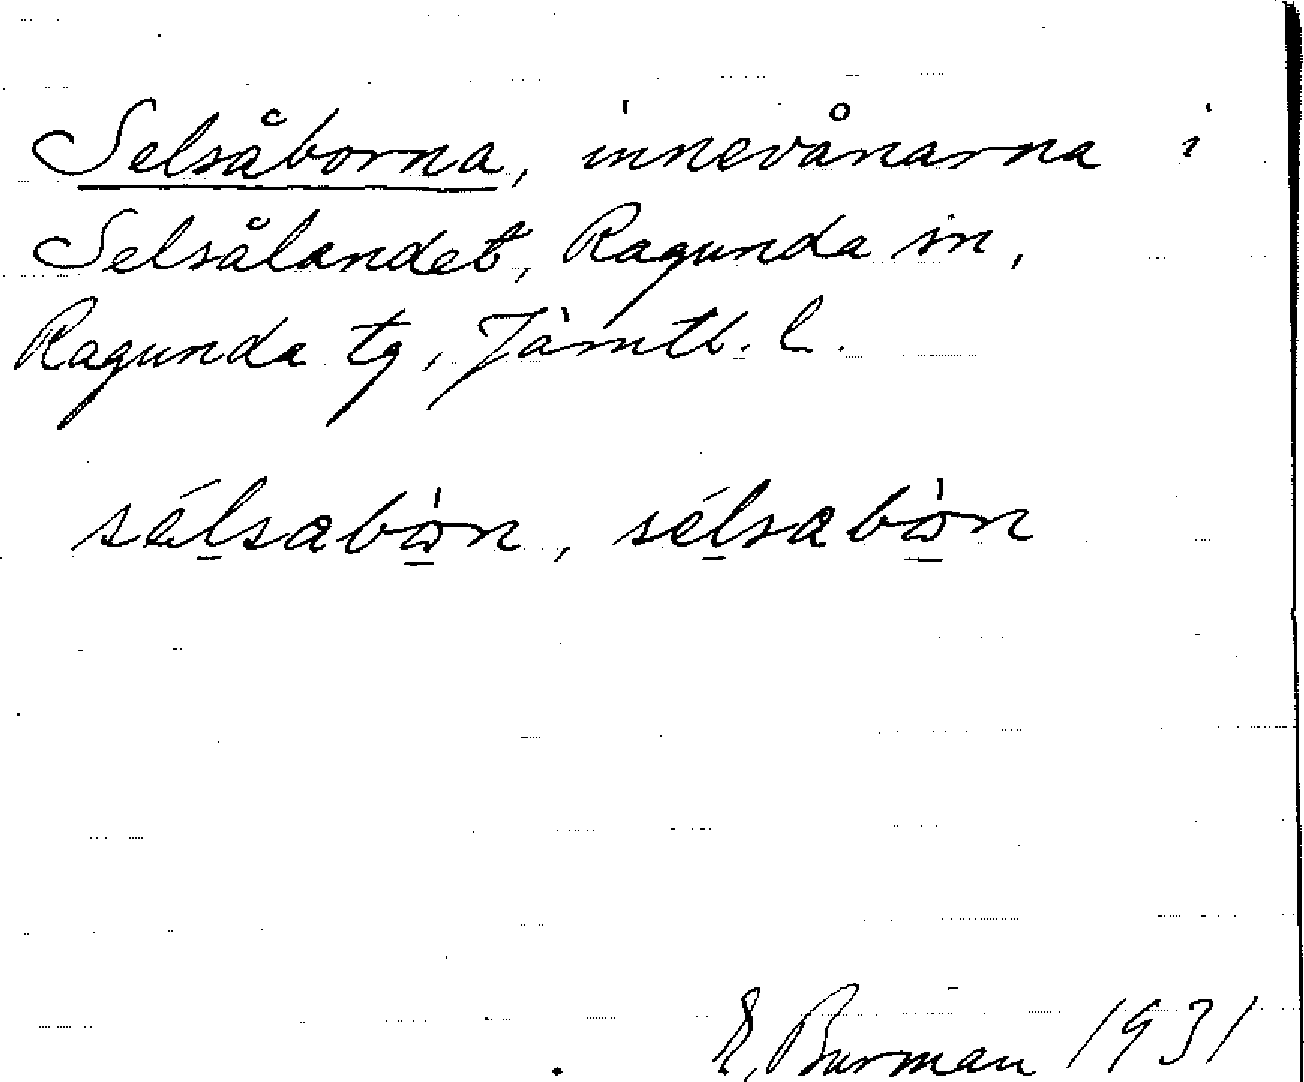 Selsåborna, innevånarna i
Selsålandet, Ragunda sn,
Ragunda tg, Jämtl. l.
sélsabòn, sélsabòn
E. Burman 1931